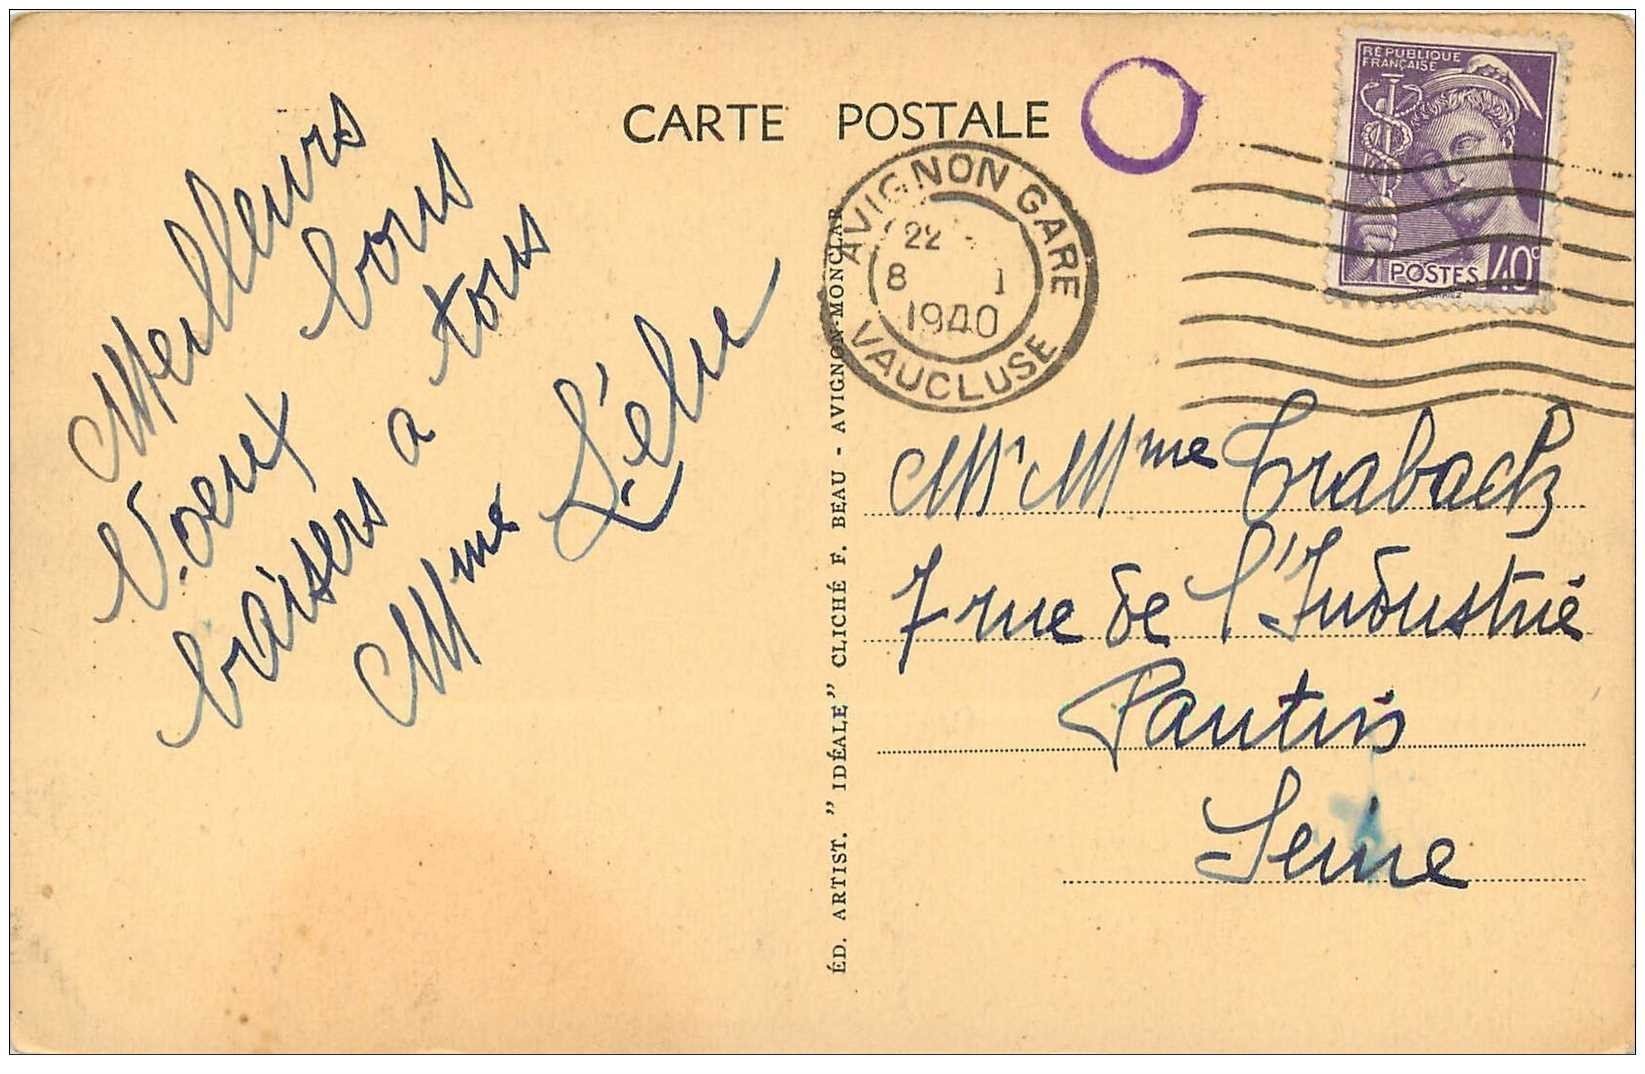 CARTE POSTALE
Meilleurs
Voeux bons
baisers a tous
Mme
ÉD. ARTIST. "IDÉALE" CLICHÉ F. BEAU - AVIGNON-MONCLAR
AVIGNON GARE
22
8 1
1940
VAUCLUSE
RÉPUBLIQUE
FRANÇAISE
POSTES 40c
Mr Mme Trabach
7 rue de l'Industrie
Pantin
Seine